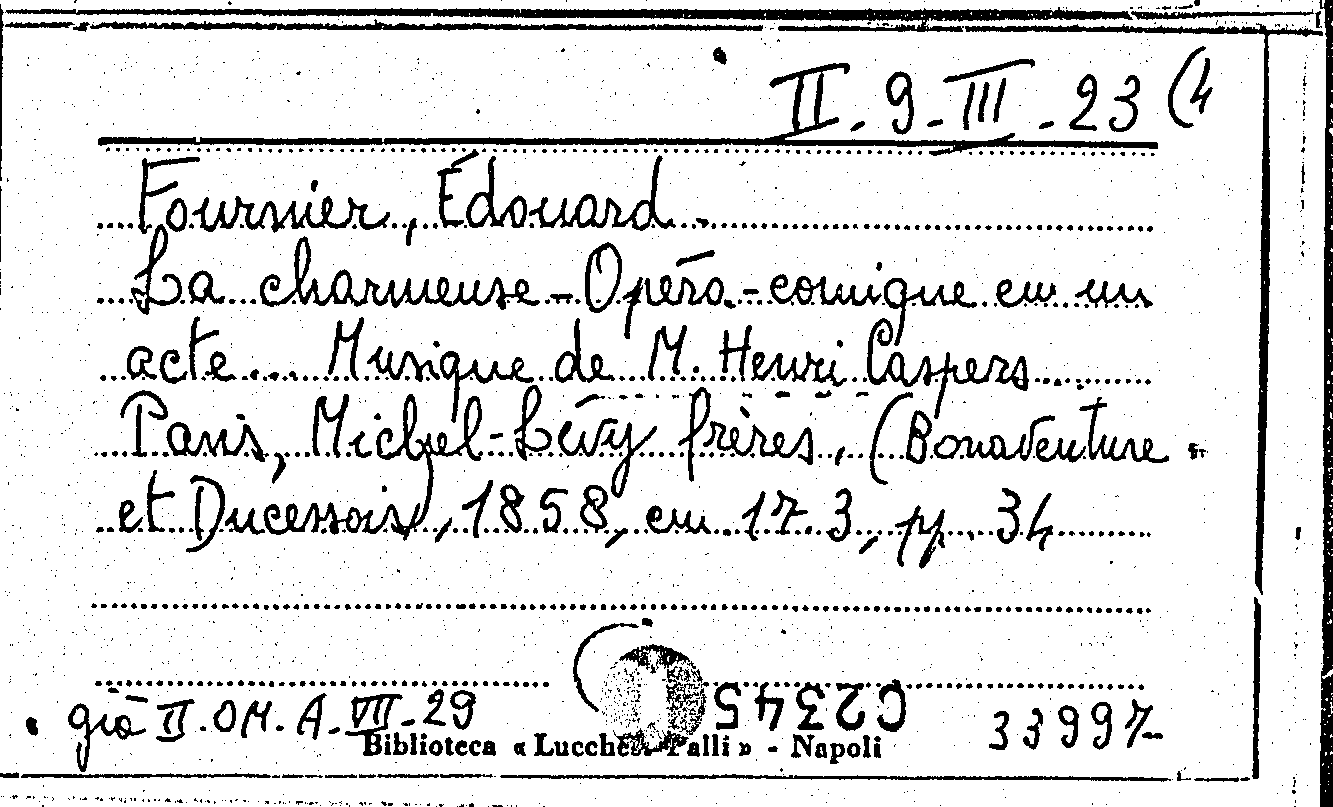 II. 9. III. 23 (4
Fournier, Édouard.
La charmeuse - Opéra-comique en un
acte... Musique de M. Henri Caspers
Paris, Michel-Lévy frères, (Bonaventure
et Ducessois), 1858, cm. 17.3, pp. 34
già II. OM. A. VII. 29
C2345
33997
Biblioteca « Lucchesi Palli » - Napoli